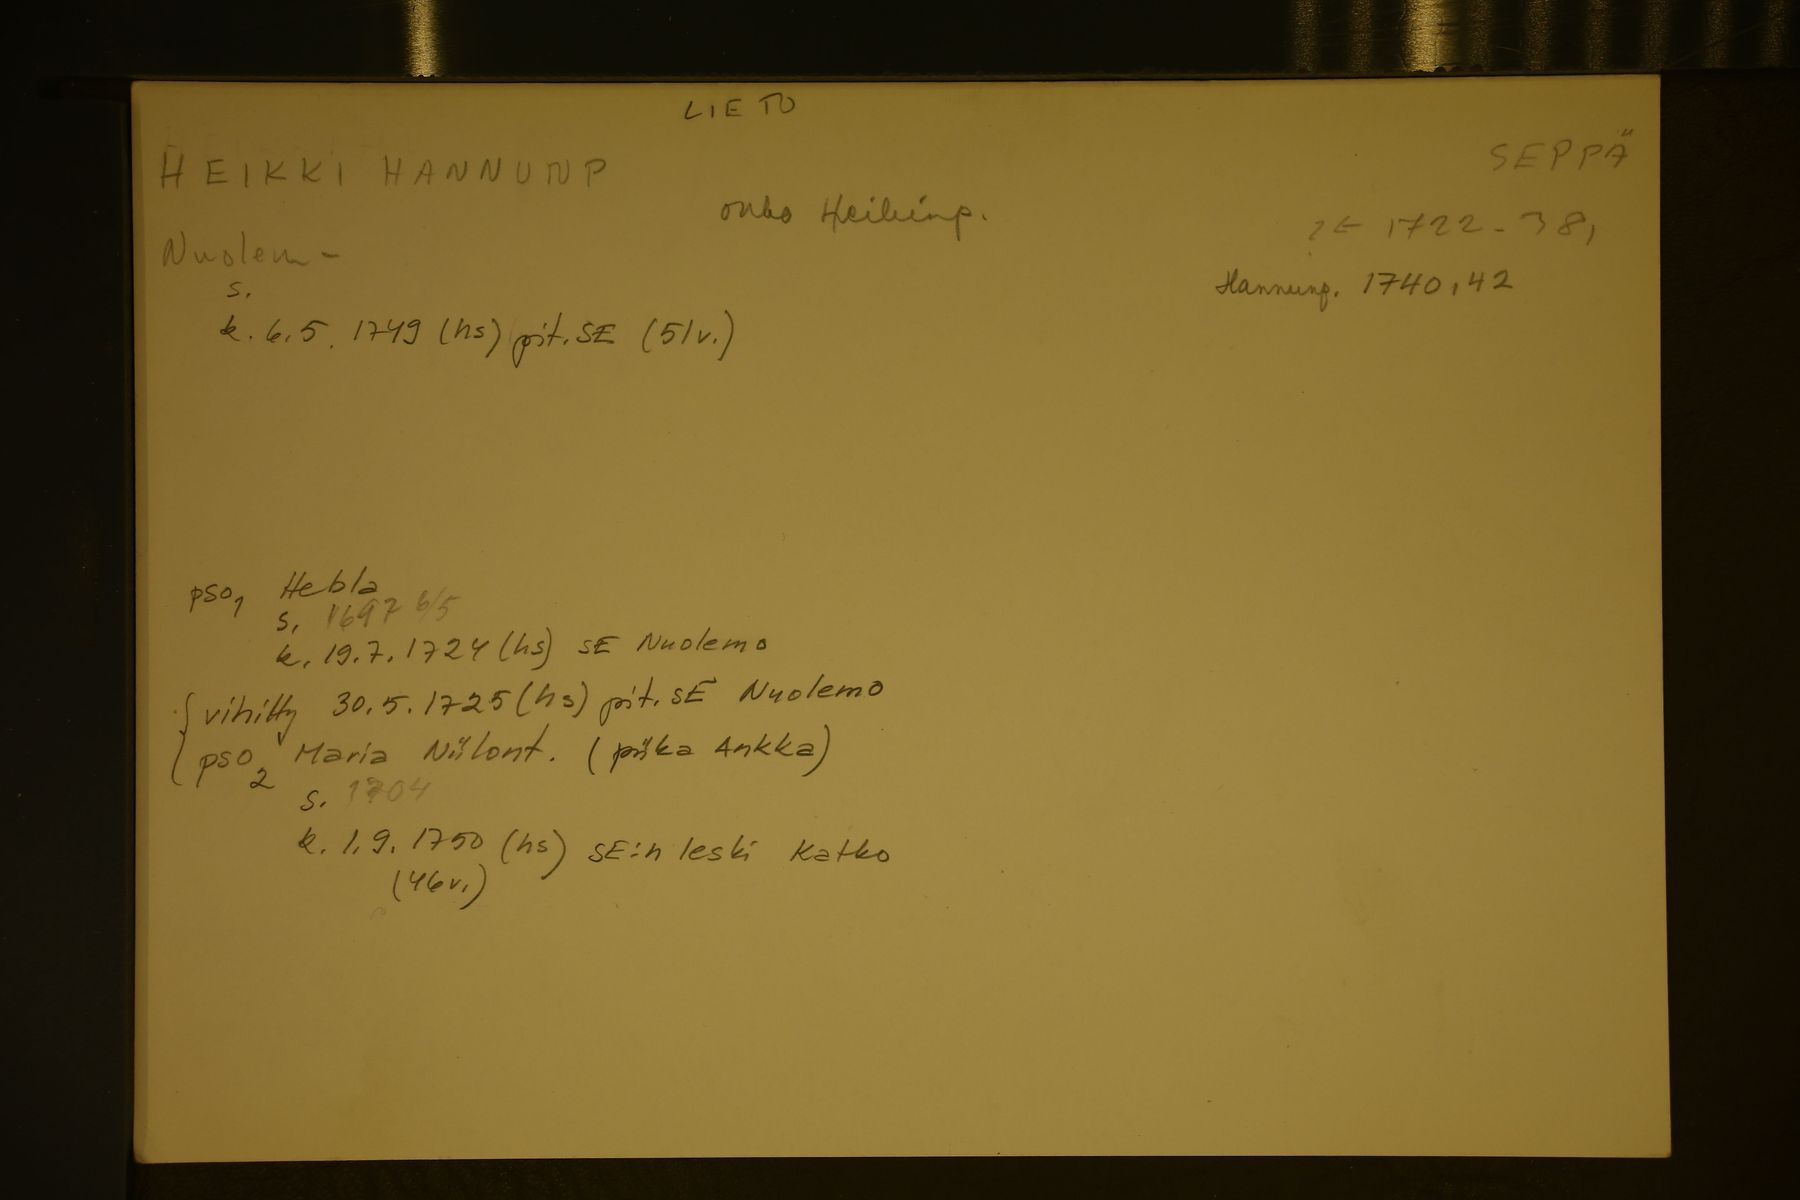 LIETO
HEIKKI HANNUNP
SEPPÄ
onko Heikinp.
1722-38,
Nuolem-
Hannunp. 1740,42
s.
k. 6.5. 1749 (hs) pit. SE (51v.)
pso1 Hebla
s. 1697 6/5
k. 19.7.1724 (hs) SE Nuolemo
{ vihitty 30.5.1725 (hs) pit. SE Nuolemo
pso2 Maria Niilont. (piika Ankka)
s. 1704
k. 1.9. 1750 (hs) SE:n leski Katko
(46v.)